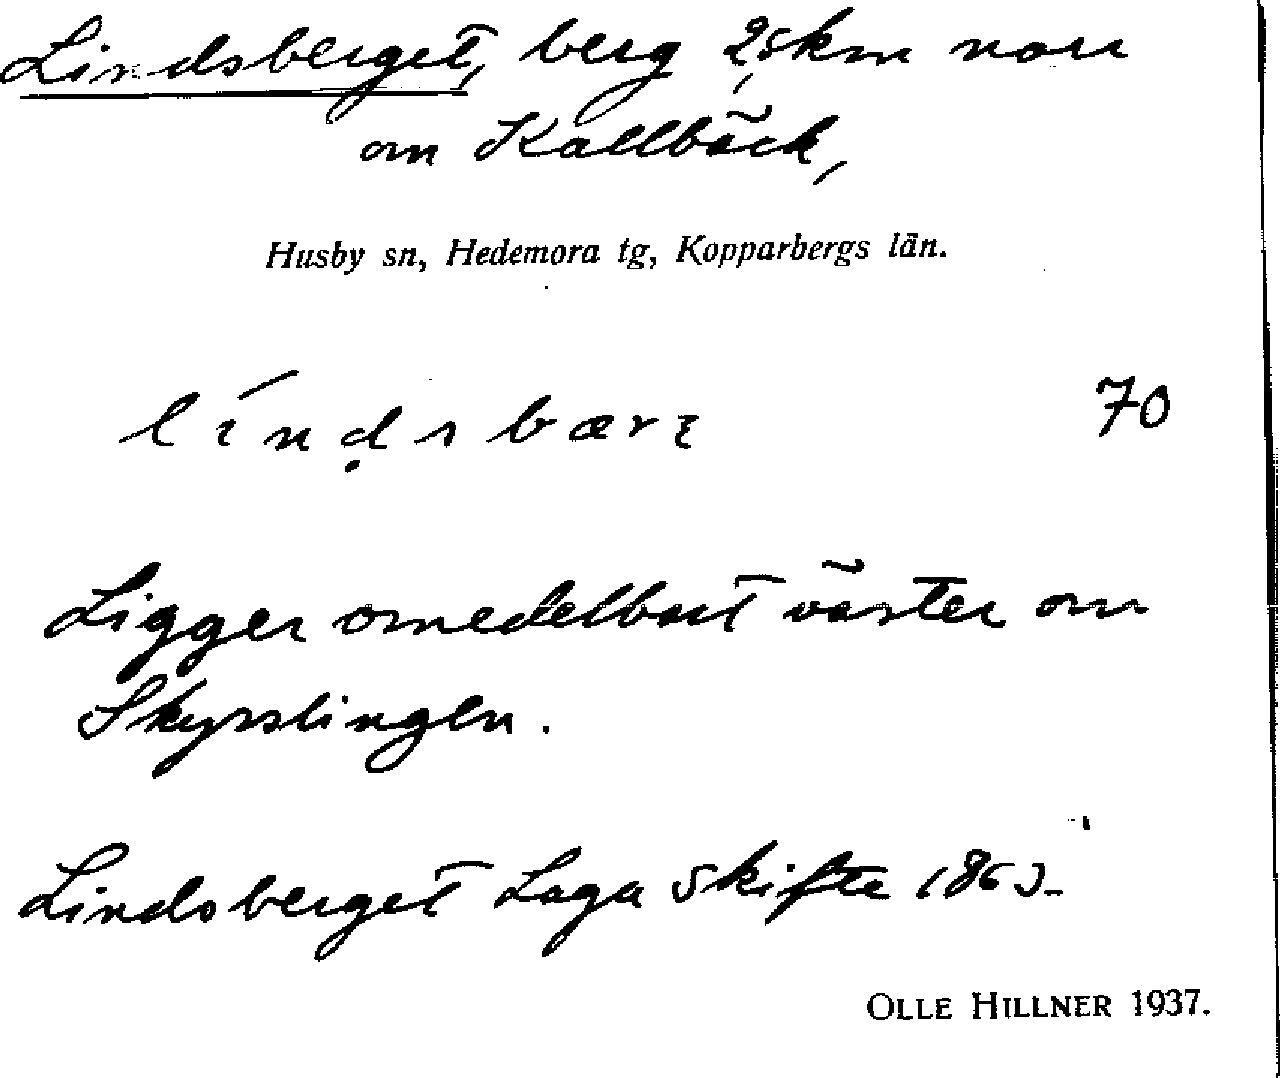 Lindsberget, berg 2,5 km norr
om Kallbäck,
Husby sn, Hedemora tg, Kopparbergs län.
70
Ligger omedelbart väster om
Skyrslingen.
Lindsberget Laga skifte
OLLE HILLNER 1937.